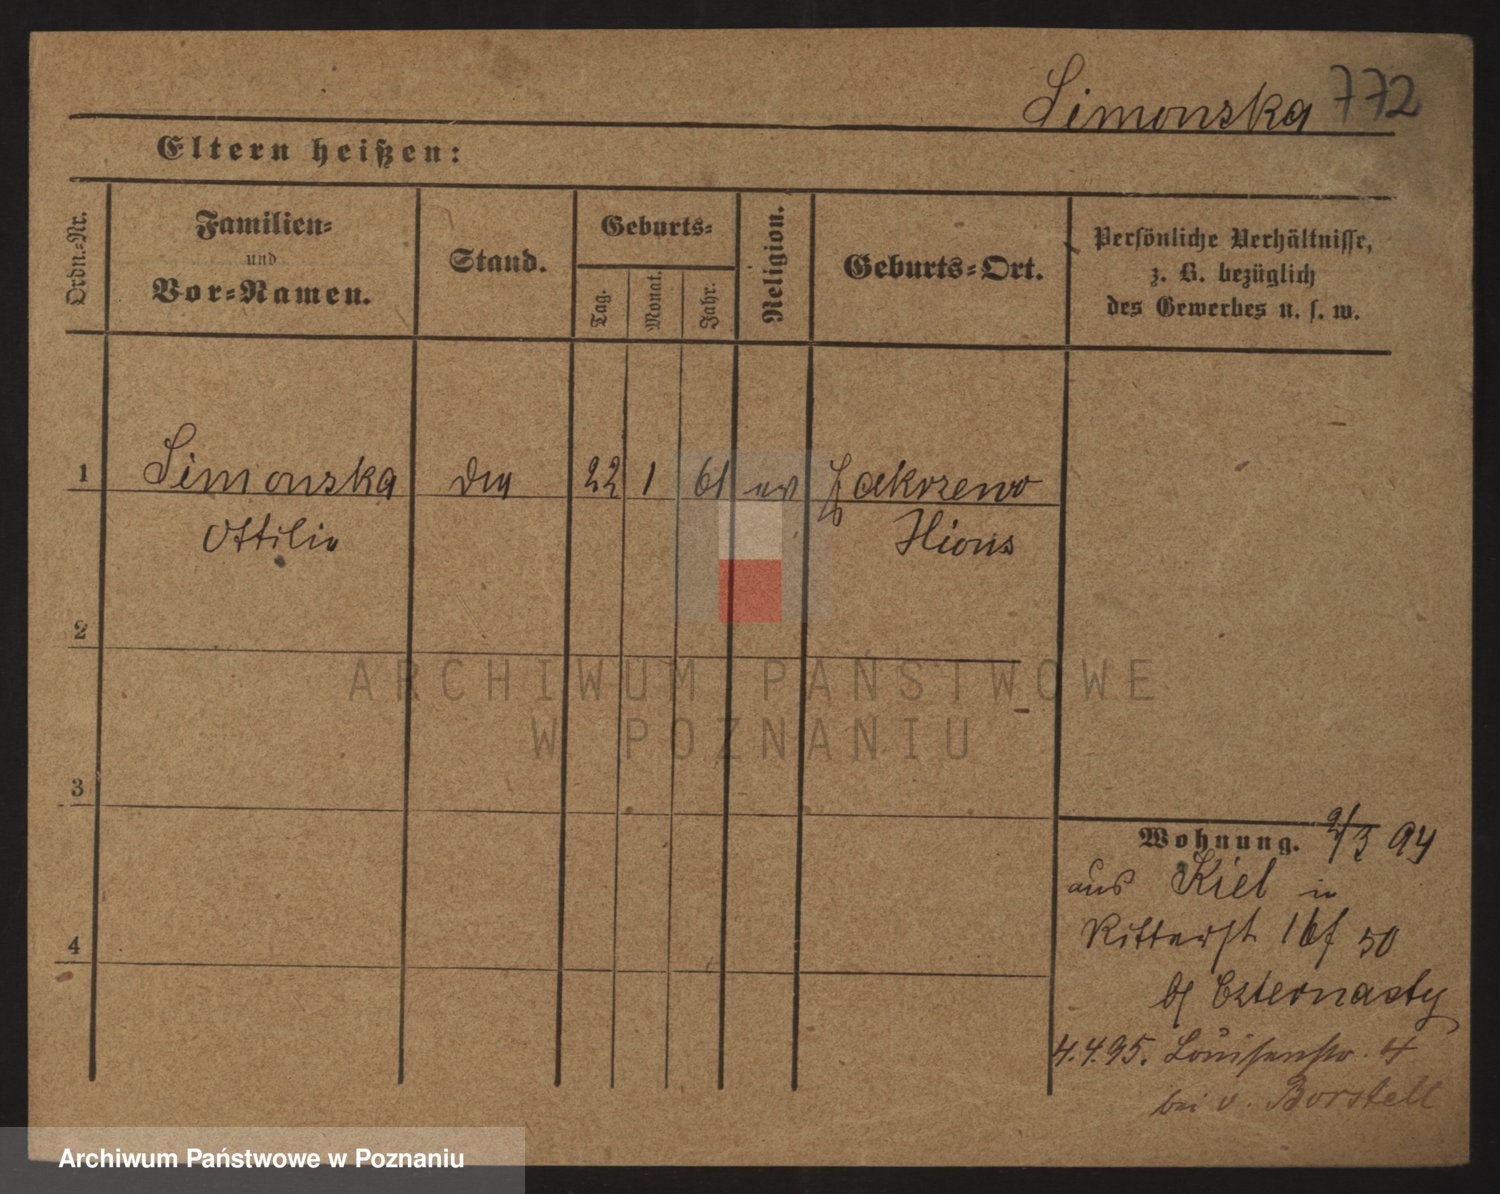 Simonska 772
Eltern heißen:
Ordn.-Nr.
Familien-
und
Vor-Namen.
Stand.
Geburts-
Tag.
Monat.
Jahr.
Religion.
Geburts-Ort.
Persönliche Verhältnisse,
z. B. bezüglich
des Gewerbes u. s. w.
1 Simonska 22 1 61 ev Zakrzewo
Ottilie Xions
2
3
4
ARCHIWUM PAŃSTWOWE
W POZNANIU
Wohnung. 2/3 94
aus Kiel in
Ritterst 16f 50
Czternasty
4.4.95. Louisenstr. 4
bei v. Borstell
Archiwum Państwowe w Poznaniu